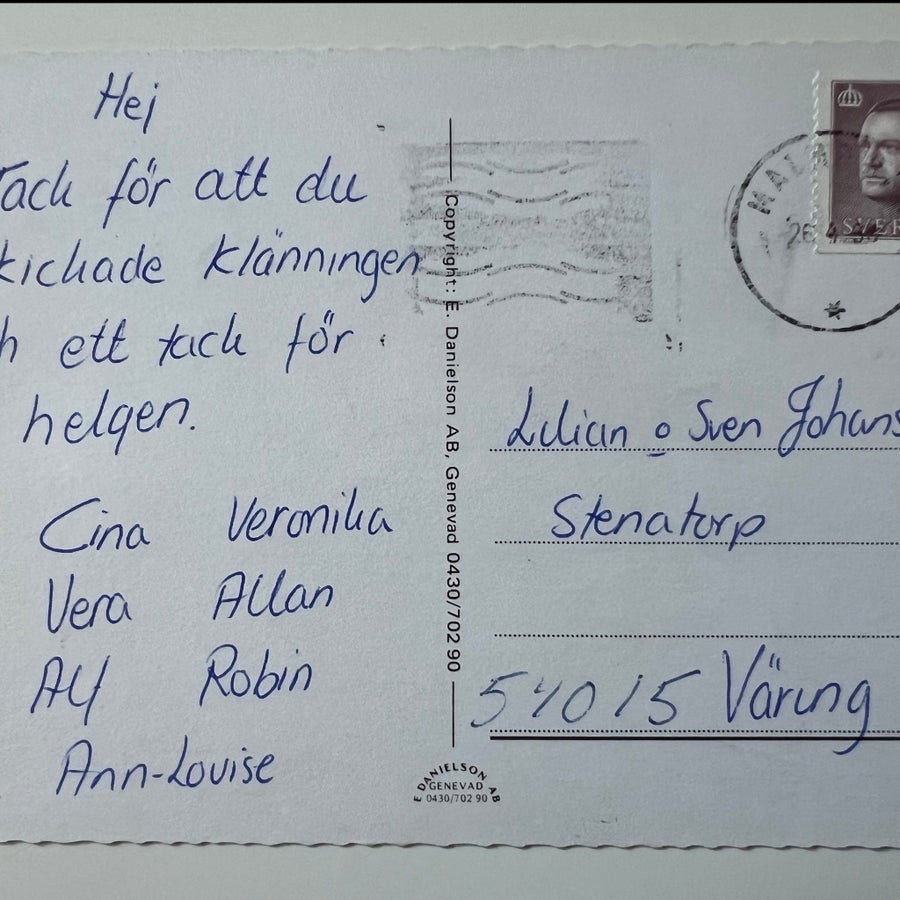 Hej
Tack för att du
kickade klänningen
h ett tack för
helgen.
Cina Veronika
Vera Allan
Alf Robin
Ann-Louise
Copyright: E. Danielson AB, Genevad 0430/702 90
E DANIELSON AB
GENEVAD
0430/702 90
MALM
26 4
SVER
Lilian o Sven Johans
Stenatorp
54015 Väring